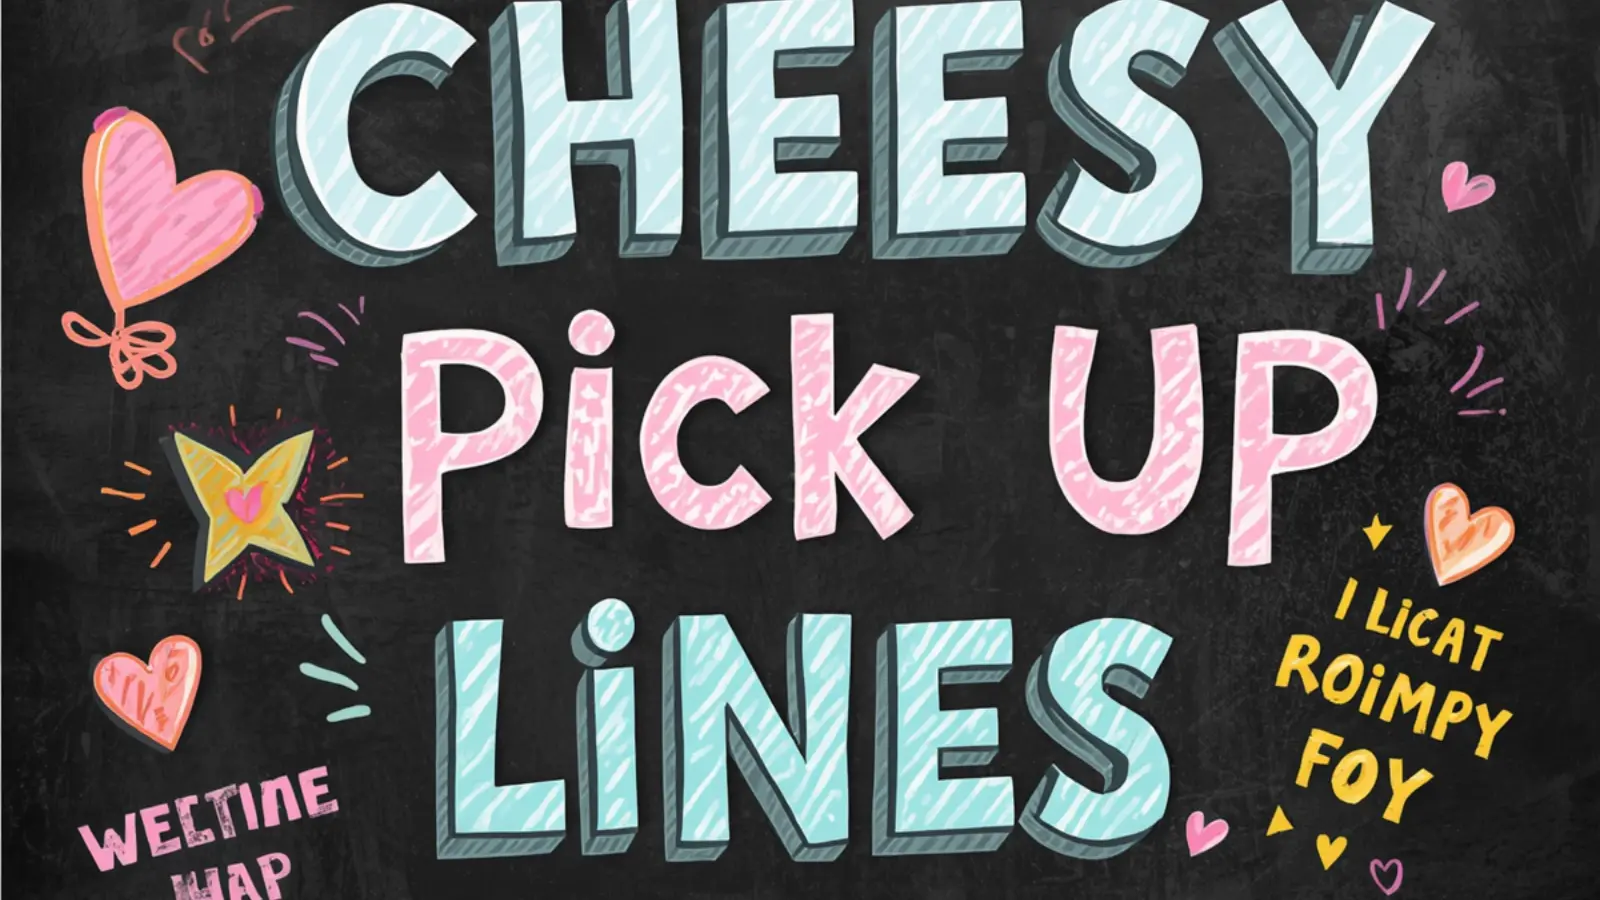 CHEESY
Pick UP
LiNES
I LiCAT
ROiMPY
FOY
WECTINE